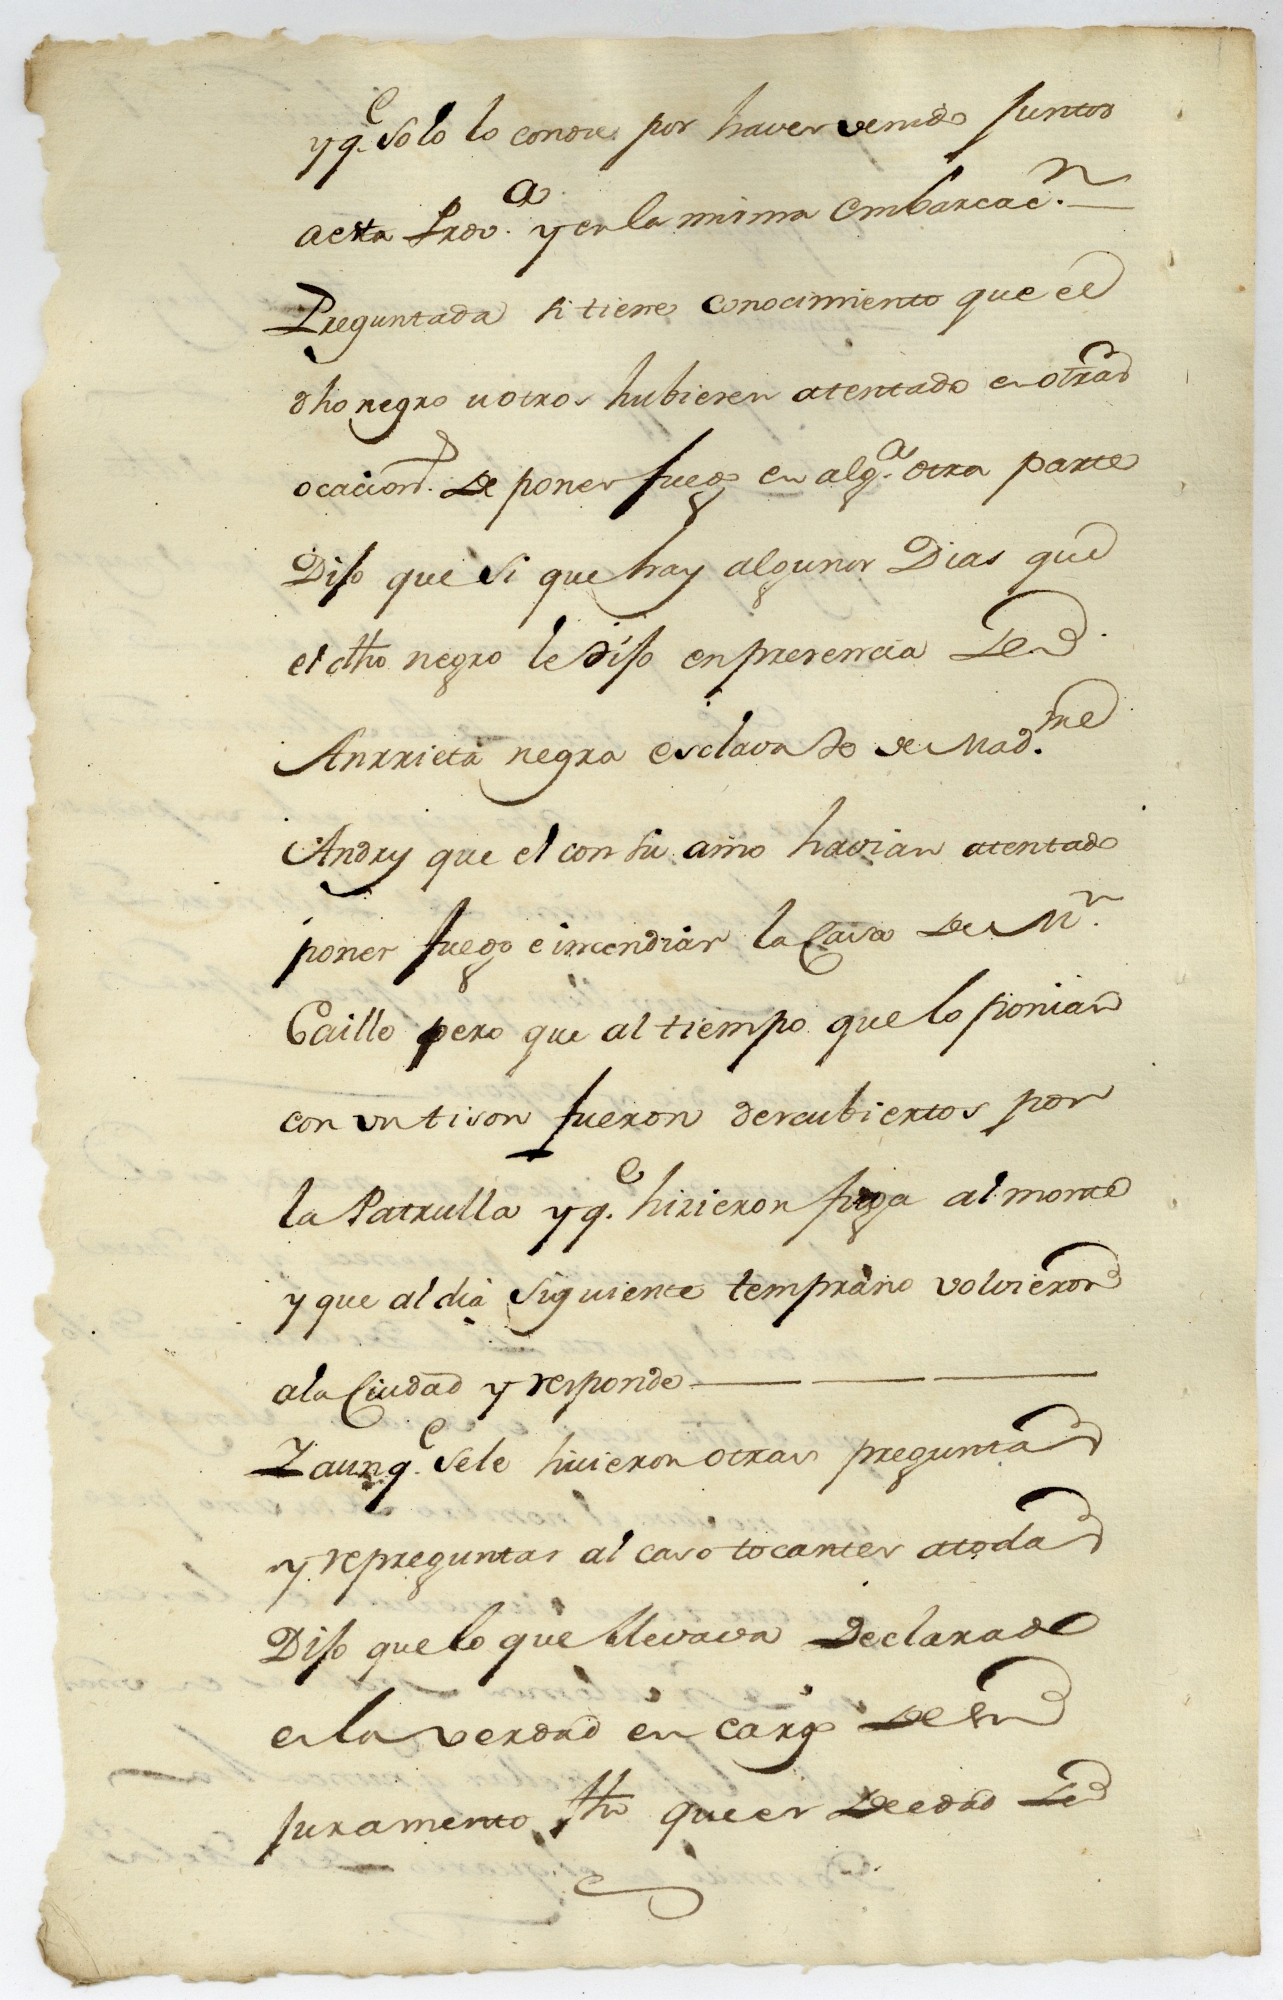 y q.e solo lo conoce por haver venido juntos
a esta Prov.a y en la misma embarcac.n
Preguntada si tiene conocimiento que el
dho negro u otros hubiesen atentado en otras
ocacion.s de poner fuego en alg.a otra parte
Dijo que si que hay algunos Dias que
el dho negro le dijo en presencia de
Anrrieta negra esclava de Mad.me
Andry que el con su amo havian atentado
poner fuego e incendiar la Casa de M.r
Caillo pero que al tiempo que lo ponian
con un tison fueron descubiertos por
la Patrulla y q.e hizieron fuga al monte
y que al dia siguiente temprano volvieron
a la Ciudad y responde
Y aunq.e se le hizieron otras preguntas
y repreguntas al caso tocantes a todas
Dijo que lo que llevava declarado
es la verdad en cargo de su
juramento fho que es de edad de